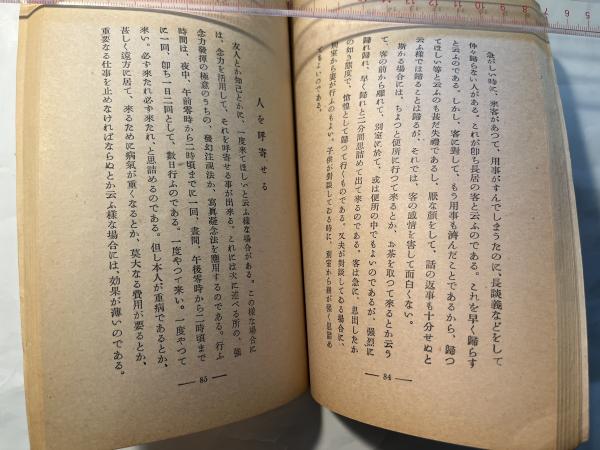 急がしい時に、來客があつて、用事がすんでしまうたのに、長談義などをして
仲々歸らない人がある。これが卽ち長居の客と云ふのである。これを早く歸らす
と云ふのである。しかし、客に對して、もう用事も濟んだことであるから、歸つ
てほしい等と云ふのも甚だ失禮であるし、厭な顏をして、話の返事も十分せぬと
云ふ樣では歸ることは歸るが、それでは、客の感情を害して面白くない。
斯かる場合には、ちよつと便所に行つて來るとか、お茶を取つて來るとか云う
て、客の前から離れて、別室に於て、或は便所の中でもよいのであるが、强烈に
歸れ歸れ、早く歸れと二分間思詰めて出て來るのである。客は急に、思出したか
の如き態度で、愴惶として歸つて行くものである。又夫が對談してゐる場合に、
別室から妻が行ふのもよい。子供が對談してゐる時に、別室から親が强く思詰め
てもよいのである。
— 84 —
人を呼寄せる
友人とか知己とかに、一度來てほしいと云ふ樣な場合がある。この樣な場合に
は、念力を活用して、それを呼寄せる事が出來る。これには次に述べる所の、强
念力發揮の極意のうちの、幾幻注視法か、寫眞凝念法を應用するのである。行ふ
時間は、夜中、午前零時から二時頃までに一回、晝間、午後零時から二時頃まで
に一回、卽ち一日二回として、數日行ふのである。一度やつて來い。一度やつて
來い。必ず來たれ必ず來たれ、と思詰めるのである。但し本人が重病であるとか、
甚しく遠方に居て、來るために病氣が重くなるとか、莫大なる費用が要るとか、
重要なる仕事を止めなければならぬとか云ふ樣な場合には、効果が薄いのである。
— 85 —